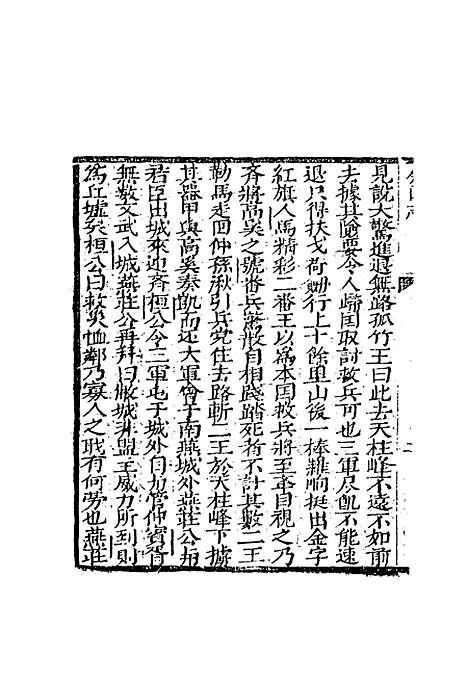 見說大驚進退無路孤竹王曰此去天柱峰不遠不如前
去據其隘要令人歸囯取討救兵可也三軍尽飢不能速
退只得扶戈荷戟行上十餘里山後一棒鑼响挺出金字
紅旗人馬精彩二番王以為本囯救兵將至近目視之乃
齊將高奚之號番兵驚散自相踐踏死者不計其數二王
勒馬走回仲孫湫引兵児住去路斬二王於天柱峰下擄
其器甲與高奚奏凱而还大軍會于南燕城外燕莊公与
君臣出城來迎齊桓公令三軍屯于城外自与管仲賓胥
無数文武入城燕莊公再拜曰敝城非盟主威力所到則
為丘墟矣桓公曰救災恤鄰乃寡人之职有何劳也燕莊